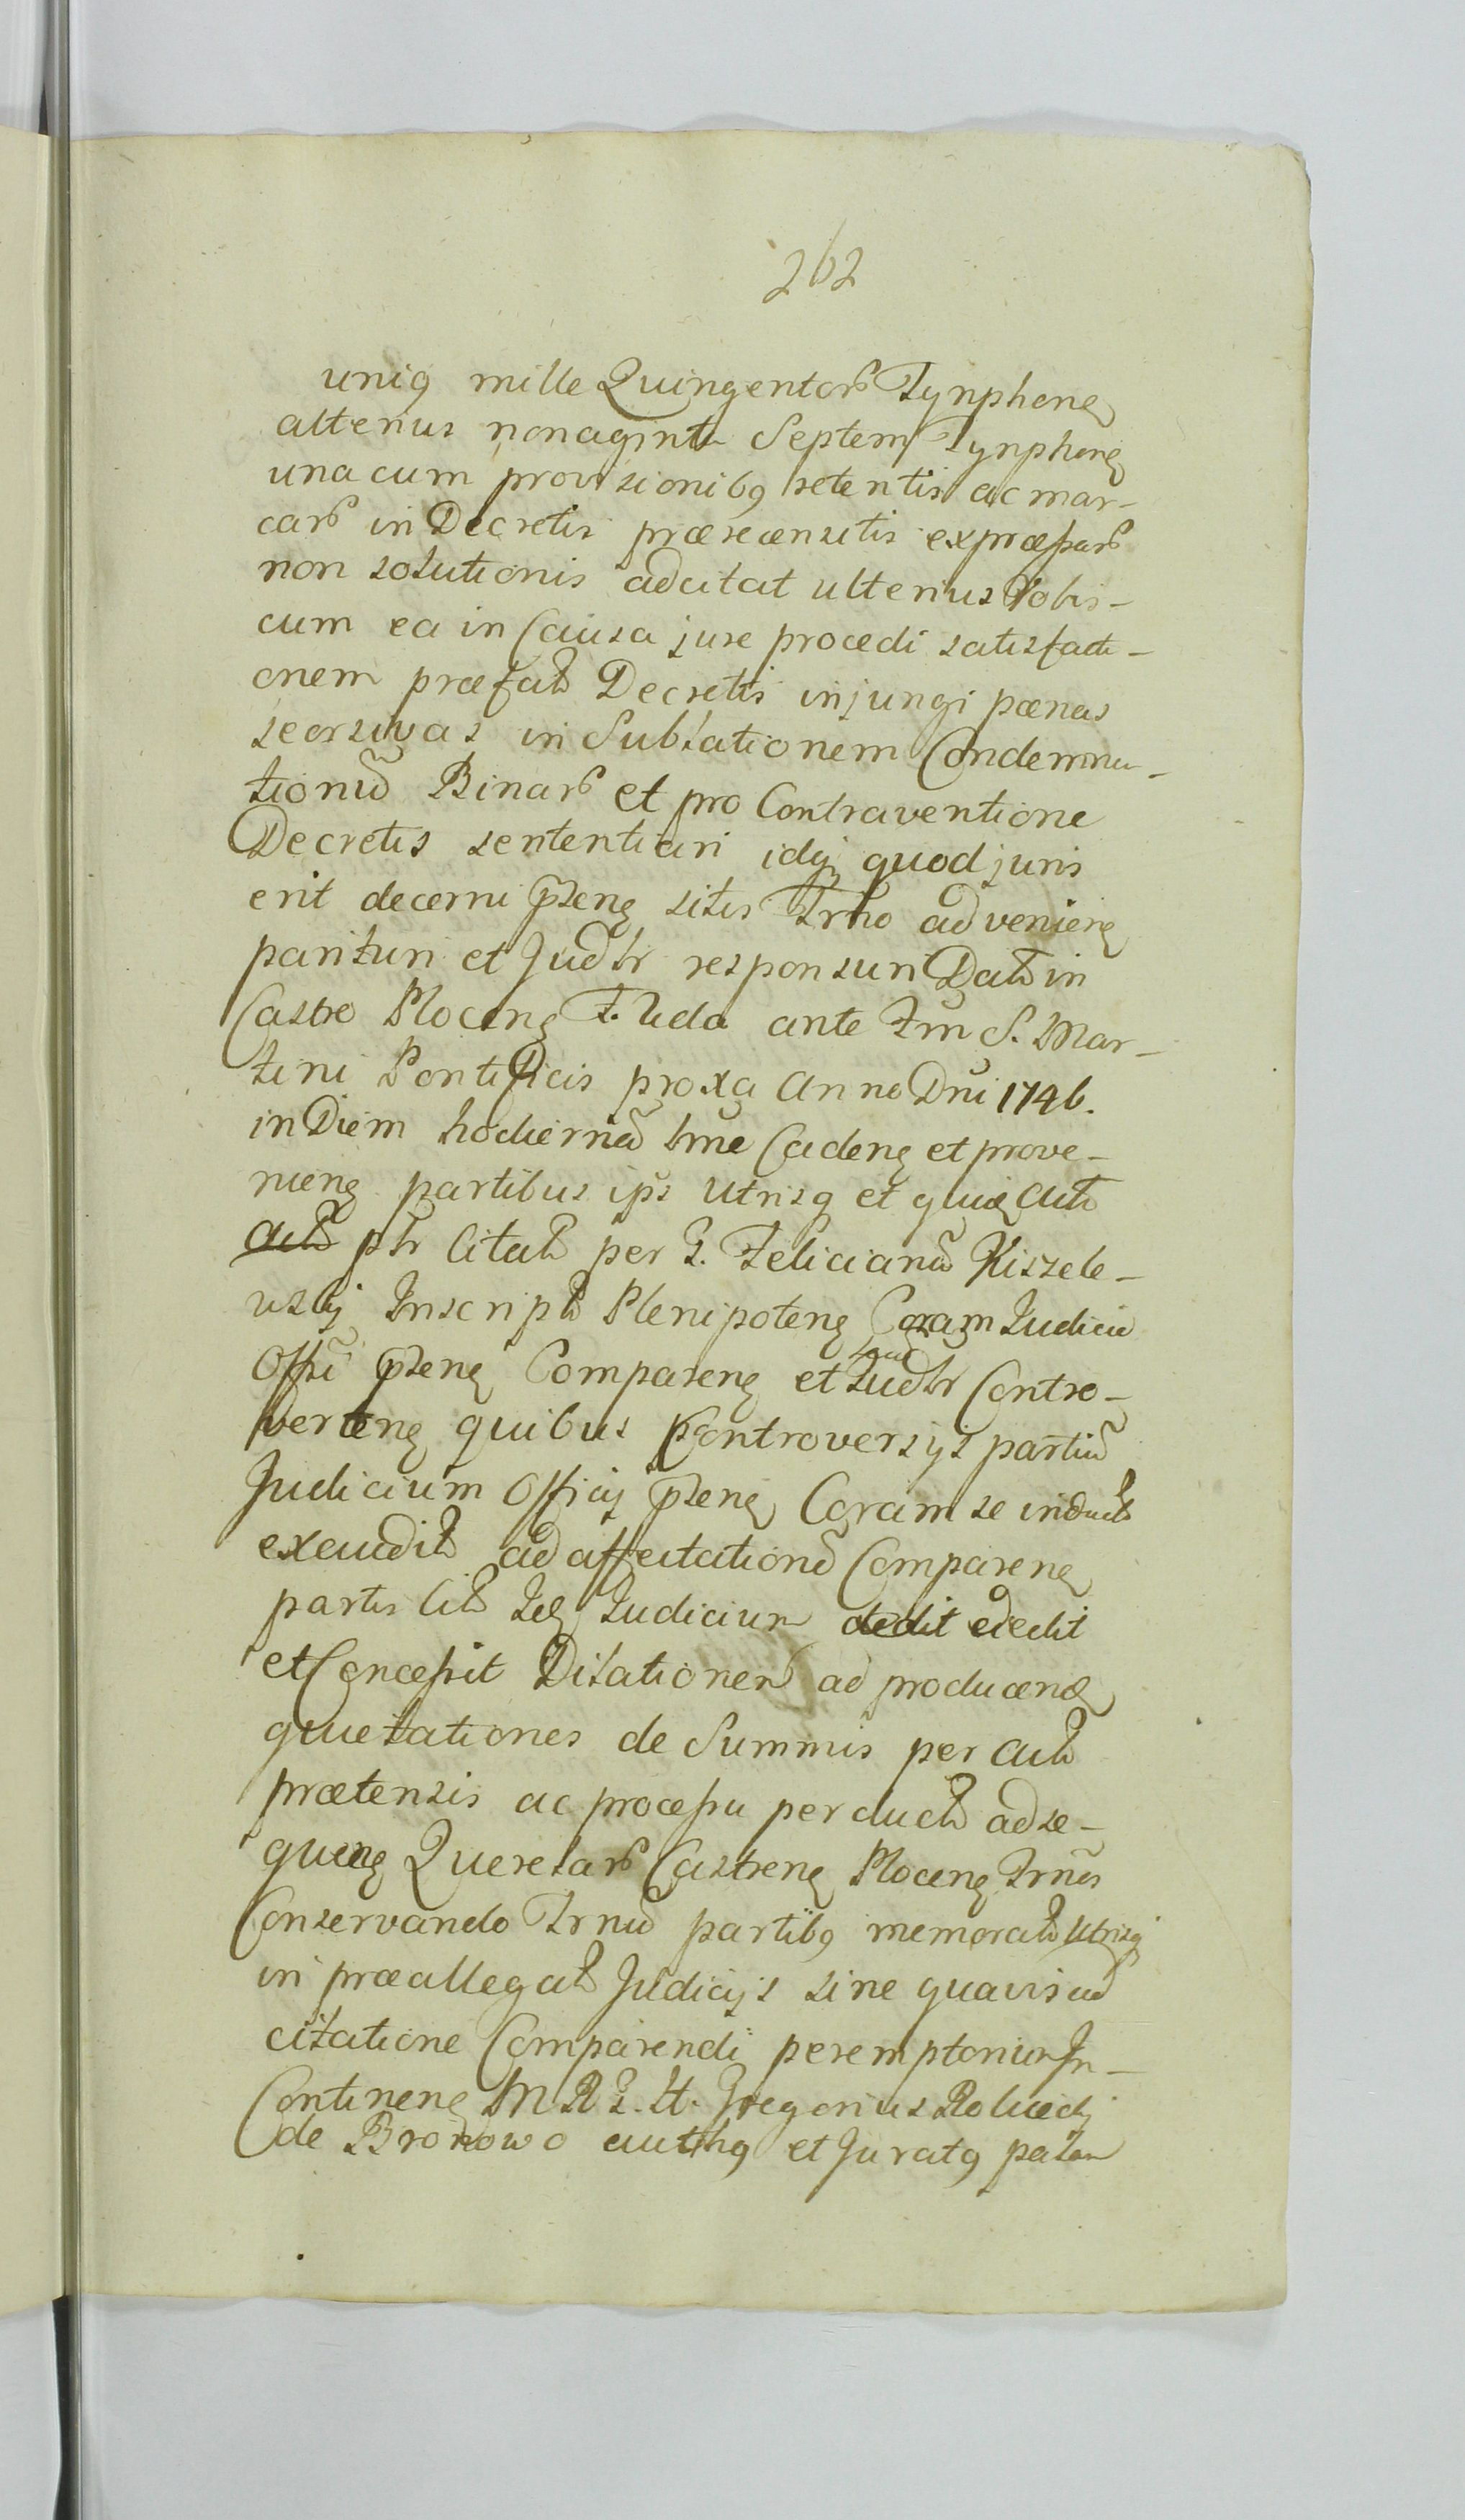 262
uniq mille Quingentor Tynphone
alterius nonaginta Septem Tynphone
una cum provisionibq retentis ac mar-
car in Decretis præsecensitis expræssar
non solutionis adcitat ulterius Vobis-
cum ea in Causa jure procedi satisfacti-
onem præfat Decretis injungi pænas
seorsivas in Sublationem Condemna-
tionũ Binar et pro Contraventione
Decretis sententiari idq quod juris
erit decerni pseng sitis Trno advenieng
parituri et Judlr responsuri Dat in
Castro Ploceng F. 2da ante Fm S. Mar-
tini Pontificis proxa Anno Dni 1746.
in Diem hodiernã trne Cadeng et prove-
nieng partibus ips Utrisq et quia Act
Act ptr Citat per G. Felicianũ Kisiele-
wskj Inscript Plenipoteng Coram Judicio
Offi pseng Compareng et Judlr Contro-
verteng quibus Controversijs partiũ
Judicium Officij pseng Coram se induct
exaudit ad affectationẽ Compareng
partis Cit Idq Judicium dedit ededit
et Concessit Dilationem ad producend
quietationes de Summis per Act
prætensis ac processu perduct ad se-
queng Querelar Castreng Ploceng Trnos
Conservando Trnũ partibq memorat Utrisq
in præallegat Judicijs sine quavis ad
citatione Comparendi peremptorium In-
Contineng M R G. H. Gregorius Rolwedj
de Bronowo authq et Juratq palam